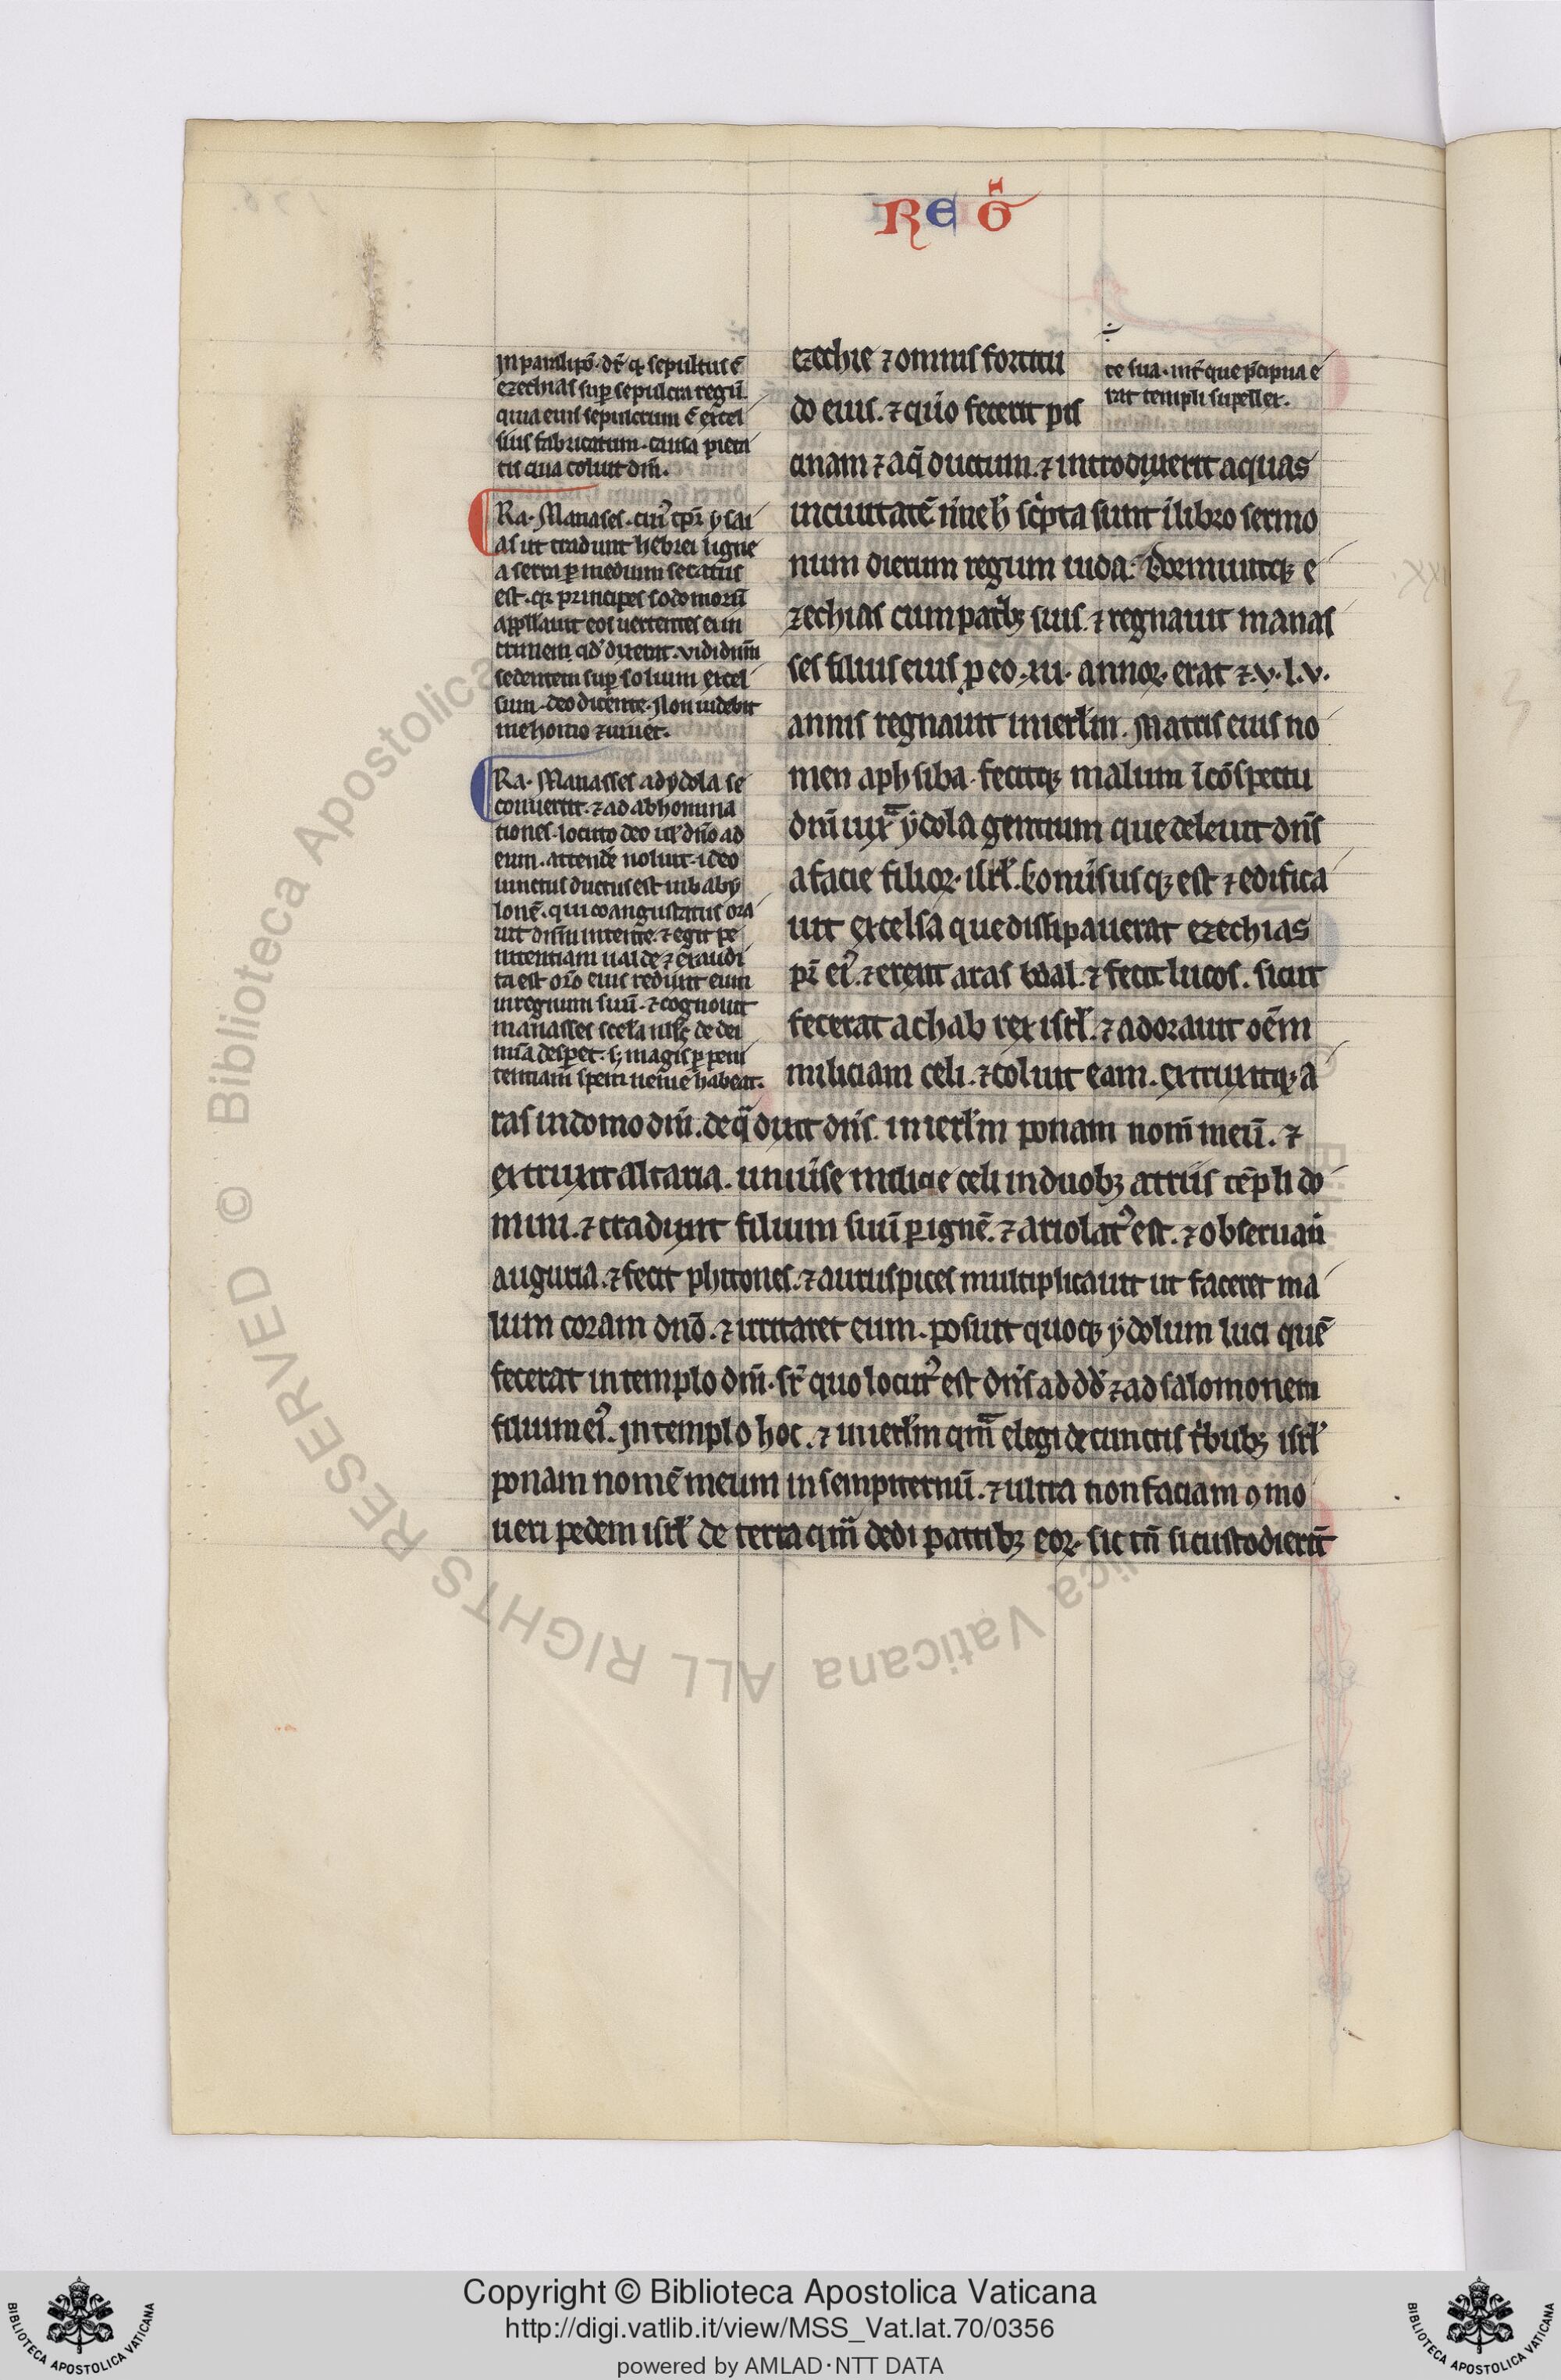 REGͦ
In paralipo͂. dr̄ qͥ sepultus ē
ezechias sup̱ sepulcra regū.
quia eius sepulcrum ē excel
sius fabricatum. causa pieta
tis qua coluit dn̄m.
Ra. Manases. cui᾽ tp̱r̄ ysai
as ut tradunt hebrei ligne
a serra ꝑ medium secatus
est. qꝛ principes sodomorū
appellauit eos uertentes ei in
crimen qd᾽ dixerit. vidi dn̄m
sedentem sup̱ solium excel
sum. deo dicente. Non uidebit
me homo ⁊ uiuet.
Ra. Manasses ad ydola se
conuertit. ⁊ ad abhomina
tiones. locuto deo
eum. attende᾽ noluit. ideo
uinctus ductus est in baby
lonē. qui coangustatus ora
uit dn̄m intente. ⁊ egit pe
nitentiam ualde ⁊ exaudi
ta est or̄o eius reduxit eum
in regnum suū. ⁊ cognouit
manasses
despet. sꝫ magis ꝑ peni
tentiam spem uenie habeat.
ezechie ⁊ omnis fortitu
do eius. ⁊ quo͂ fecerit pis
cinam ⁊ aq̄ductum. ⁊ introduxerit aquas
in ciuitatē nn̄e h᾽ sc͛pta sunt ı̄ libro sermo
num dierum regum iuda. Dormiuitqꝫ e
zechias cum patribꝫ suis. ⁊ regnauit manas
ses filius eius ꝓ eo. xii. annoꝝ. erat ⁊ .v. l. v.
annis regnauit in ierl᾽m. Matris eius no
men aphsiba. fecitqꝫ malum ı̄ cōspectu
dn̄i iuxͣ ydola gentium que deleuit dn̄s
a facie filioꝝ. isrl᾽. 
uit excelsa que dissipauerat ezechias
pr̄ ei᾽. ⁊ erexit aras baal. ⁊ fecit lucos. sicut
fecerat achab rex isrl᾽. ⁊ adorauit oēm
miliciam celi. ⁊ coluit eam. extruxitqꝫ a
ras in domo dn̄i. de qͣ dixit dn̄s. in ierl᾽m ponam nom̄ meū. ⁊
extruxit altaria. uniu᾽se milicie celi in duobꝫ atriis tēpli do
mini. ⁊ traduxit filium suū ꝑ ignē. ⁊ ariolat᾽ est. ⁊ obseruauͥ
auguria. ⁊ fecit phitones. ⁊ auruspices multiplicauit ut faceret ma
lum coram dn̄o. ⁊ irritaret eum. posuit quoqꝫ ydolum luci quē
fecerat in templo dn̄i. sr̄ quo locut᾽ est dn̄s ad dd᾽ ⁊ ad salomonem
filium ei᾽. In templo hoc. ⁊ in ierl᾽m qͣm elegi de cunctis tͥbubꝫ isrl᾽
ponam nomē meum in sempiternū. ⁊ ultra non faciam ꝯmo
ueri pedem isrl᾽ de terra qͣm dedi patribꝫ eoꝝ. sic tn̄ si custodierīt
te sua. int᾽ que pͥcipua e
rat templi supellex.
© Biblioteca Apostolica Vaticana ALL RIGHTS RESERVED
Copyright © Biblioteca Apostolica Vaticana
http://digi.vatlib.it/view/MSS_Vat.lat.70/0356
powered by AMLAD·NTT DATA
BIBLIOTECA APOSTOLICA VATICANA
BIBLIOTECA APOSTOLICA VATICANA